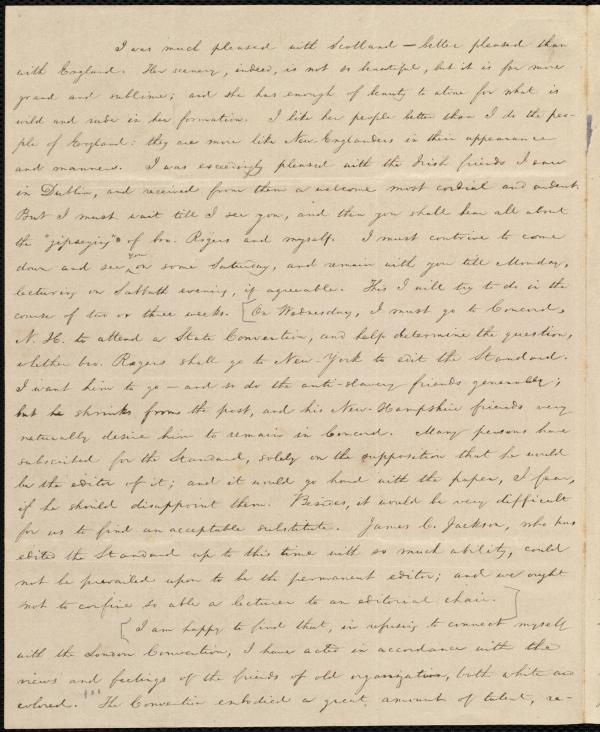 I was much pleased with Scotland — better pleased than
with England. Her scenery, indeed, is not so beautiful, but it is far more
grand and sublime; and she has enough of beauty to atone for what is
wild and rude in her formation. I like her people better than I do the peo-
ple of England: they are more like New-Englanders in their appearance
and manners. I was exceedingly pleased with the Irish friends I saw
in Dublin, and received from them a welcome most cordial and ardent.
But I must wait till I see you, and then you shall hear all about
the "gipseying" of bro. Rogers and myself. I must contrive to come
down and see you on some Saturday, and remain with you till Monday,
lecturing on Sabbath evening, if agreeable. This I will try to do in the
course of two or three weeks. [On Wednesday, I must go to Concord,
N. H. to attend a State Convention, and help determine the question,
whether bro. Rogers shall go to New-York to edit the Standard.
I want him to go — and so do the anti-slavery friends generally;
but he shrinks from the post, and his New-Hampshire friends very
naturally desire him to remain in Concord. Many persons have
subscribed for the Standard, solely on the supposition that he would
be the editor of it; and it would go hard with the paper, I fear,
if he should disappoint them. Besides, it would be very difficult
for us to find an acceptable substitute. James C. Jackson, who has
edited the Standard up to this time with so much ability, could
not be prevailed upon to be the permanent editor; and we ought
not to confine so able a lecturer to an editorial chair.]
[I am happy to find that, in refusing to connect myself
with the London Convention, I have acted in accordance with the
views and feelings of the friends of old organization, both white and
colored. The Convention embodied a great amount of talent, re-